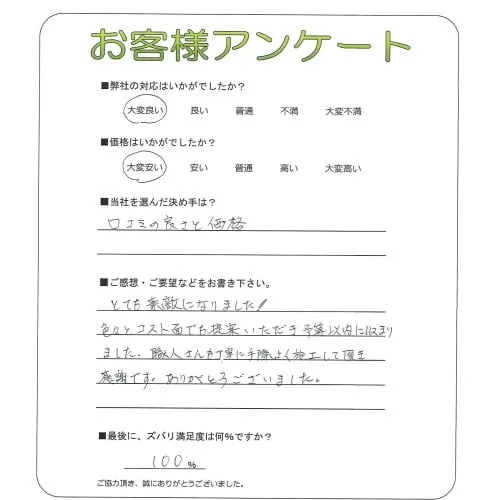 お客様アンケート
■弊社の対応はいかがでしたか？
大変良い 良い 普通 不満 大変不満
■価格はいかがでしたか？
大変安い 安い 普通 高い 大変高い
■当社を選んだ決め手は？
口コミの良さと価格
■ご感想・ご要望などをお書き下さい。
とても素敵になりました!
色々とコスト面でも提案いただき予算以内に収まり
ました。職人さんも丁寧に手際よく施工して頂き
感謝です。ありがとうございました。
■最後に、ズバリ満足度は何%ですか？
100 %
ご協力頂き、誠にありがとうございました。